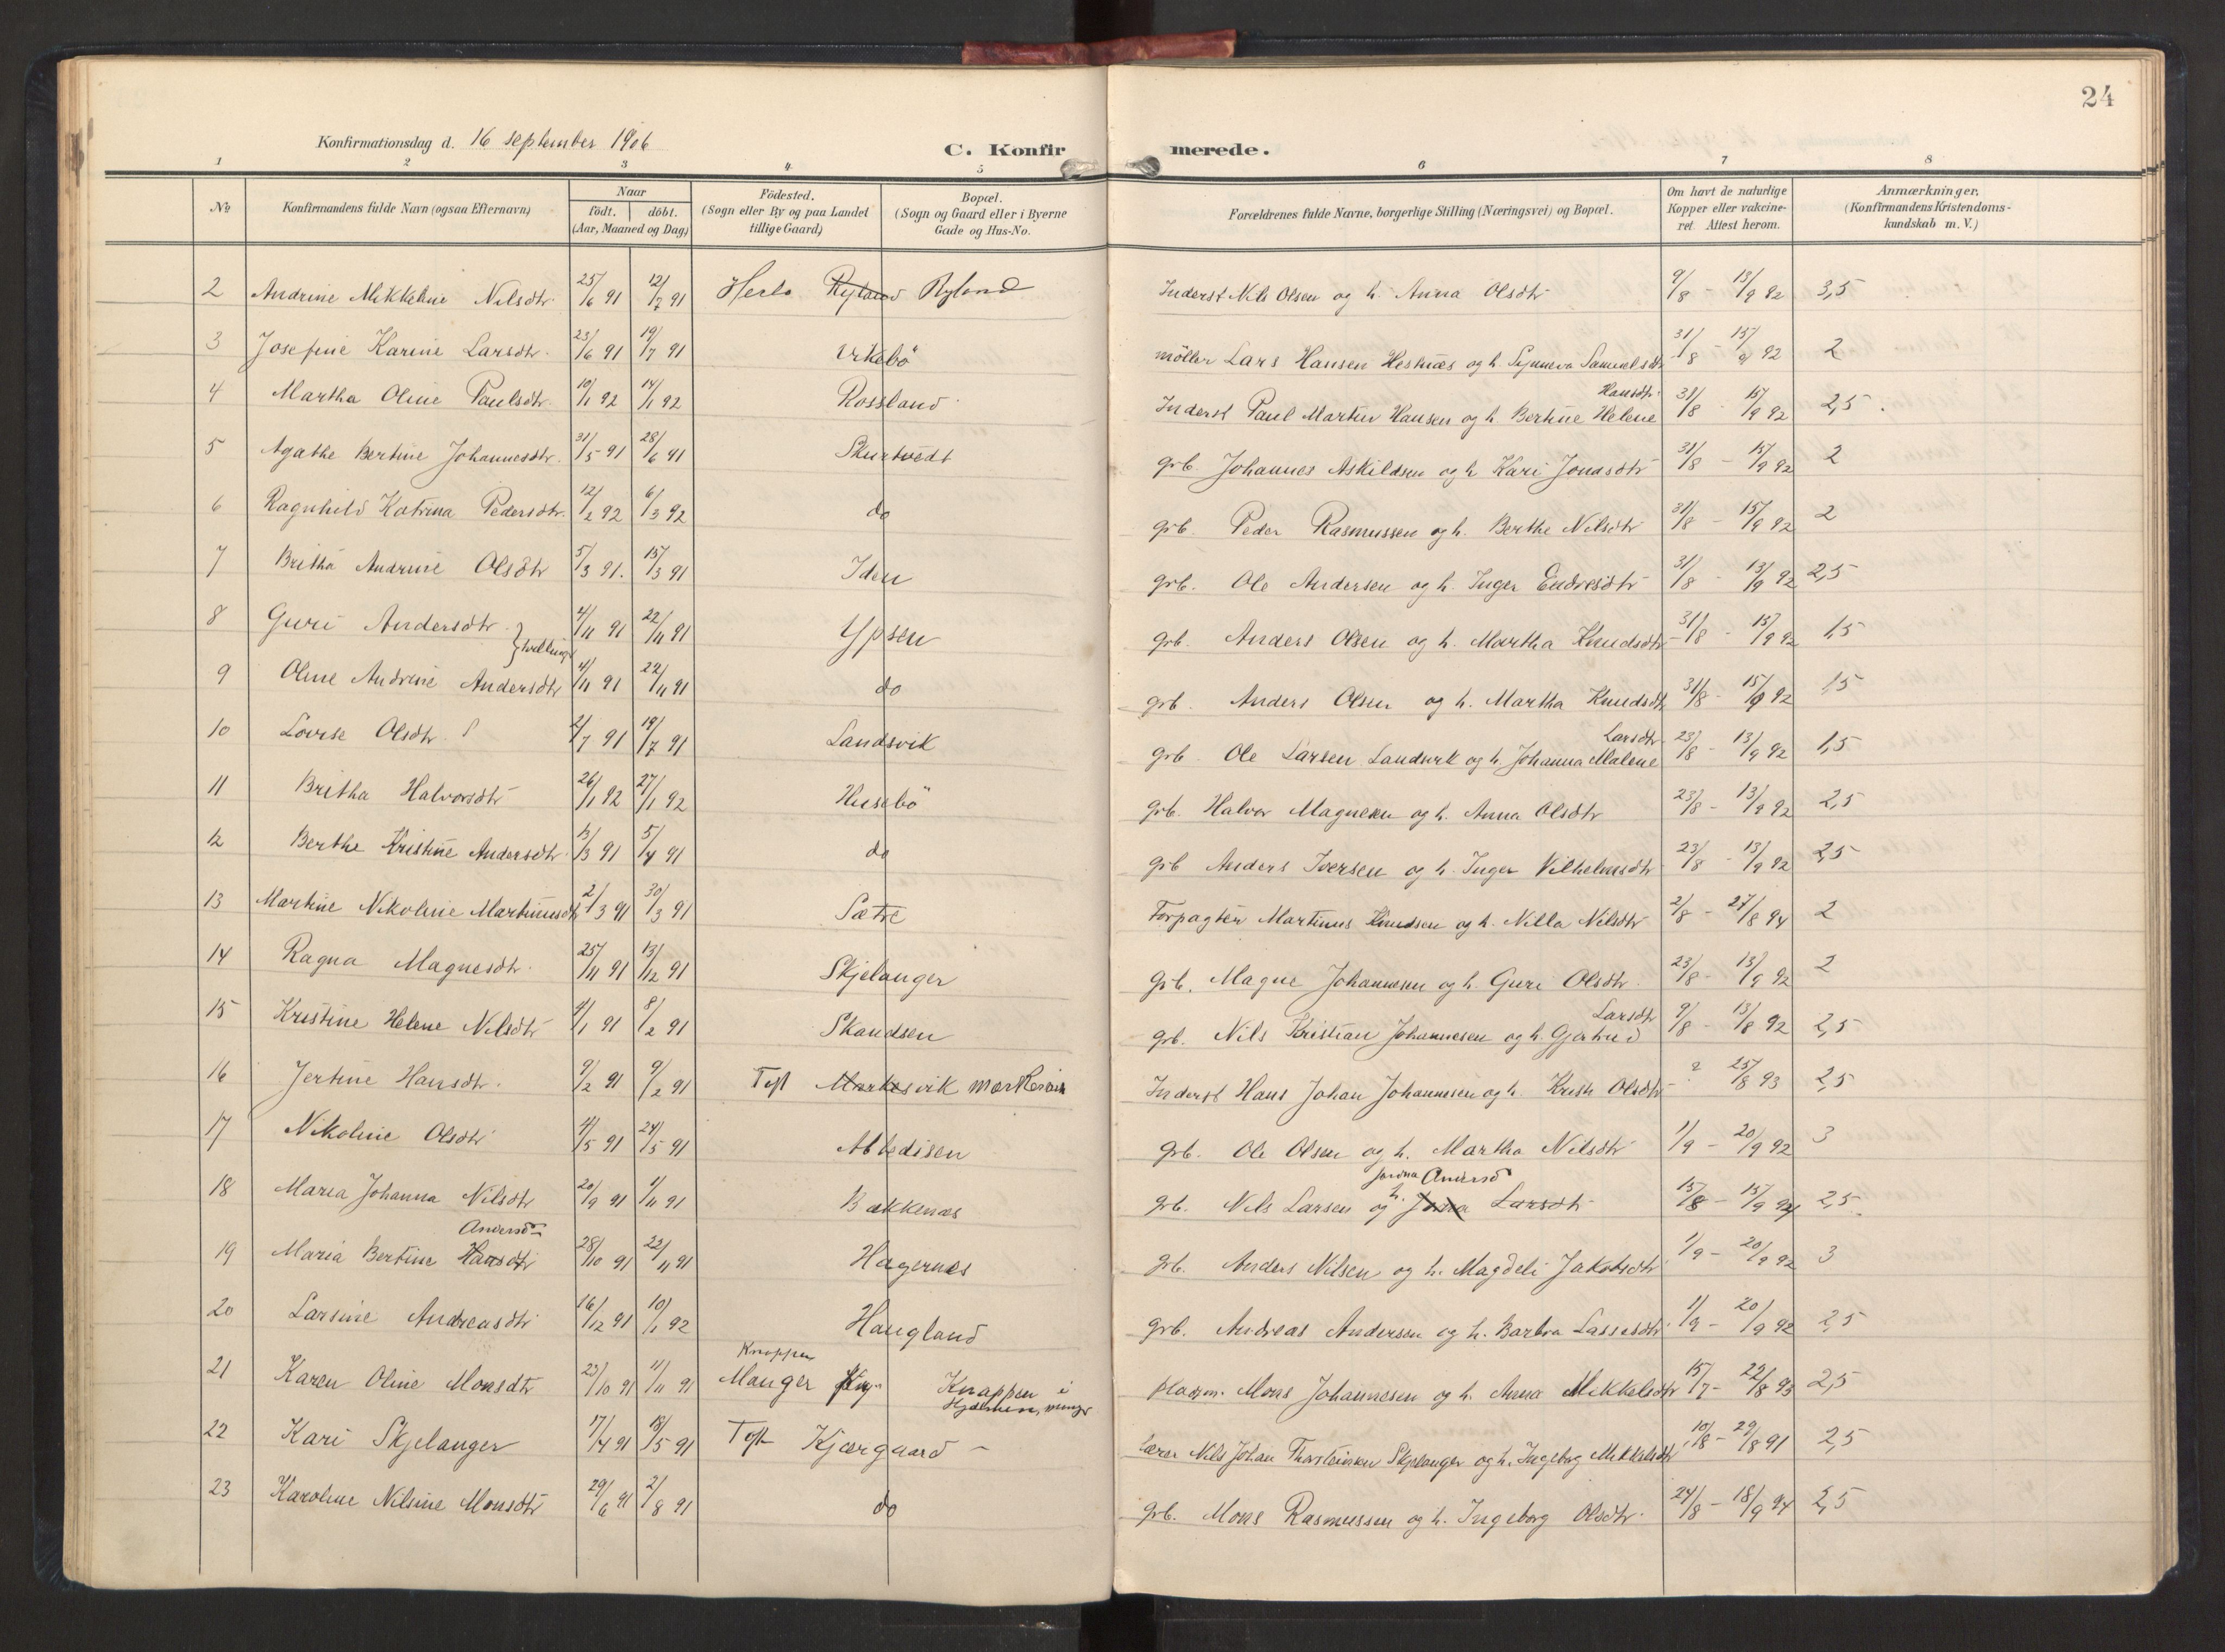 24
Konfirmationsdag d. 16 september 1906
C. Konfirmerede.
1 2 3 4 5 6 7 8
№ Konfirmandens fulde Navn (ogsaa Efternavn) Naar födt. döbt. (Aar, Maaned og Dag) Födested. (Sogn eller By og paa Landet tillige Gaard) Bopæl. (Sogn og Gaard eller i Byerne Gade og Hus-No. Forældrenes fulde Navne, borgerlige Stilling (Næringsvei) og Bopæl. Om havt de naturlige Kopper eller vakcineret. Attest herom. Anmærkninger, (Konfirmandens Kristendomskundskab m. V.)
2 Andrine Mikkeline Nilsdtr. 25/6 91 12/7 91 Herlo Ryland Ryland Inderst Nils Olsen og h. Anna Olsdtr 9/8 - 13/9 92 3,5
3 Josefine Karine Larsdtr. 23/6 91 19/7 91 Urkebö møller Lars Hansen Hesknæs og h. Synneva Samuelsdtr 31/8 - 15/9 92 2
4 Martha Oline Paulsdtr. 10/1 92 14/1 92 Rossland Inderst Paul Martin Hansen og h. Bertine Helene Hansdtr. 31/8 - 15/9 92 2,5
5 Agathe Bertine Johannesdtr. 31/5 91 28/6 91 Skurtvedt grb. Johannes Askildsen og h Kari Jonasdtr 31/8 - 15/9 92 2
6 Ragnhild Katrina Pedersdtr. 12/2 92 6/3 92 do grb. Peder Rasmussen og h. Berthe Nilsdtr 31/8 - 15/9 92 2
7 Britha Andrine Olsdtr 5/3 91. 15/3 91 Iden grb. Ole Andersen og h. Inger Endresdtr 31/8 - 13/9 92 2,5
8 Guri Andersdtr. } tvillinger 4/11 91 22/11 91 Ypsen grb. Anders Olsen og h. Martha Knudsdtr 31/8 - 15/9 92 1,5
9 Oline Andrine Andersdtr 4/11 91 22/11 91 do grb. Anders Olsen og h. Martha Knudsdtr 31/8 - 15/9 92 1,5
10 Lovise Olsdtr. 2/7 91 19/7 91 Landsvik grb. Ole Larsen Landsvik og h. Johanna Malene Larsdtr. 23/8 - 13/9 92 1,5
11 Britha Halvorsdtr 26/1 92 27/1 92 Husebö grb. Halvor Magnesen og h. Anna Olsdtr 23/8 - 13/9 92 2,5
12 Berthe Kristine Andersdtr. 13/3 91 5/4 91 do grb Anders Iversen og h. Inger Vilhelmsdtr 23/8 - 13/9 92 2,5
13 Martine Nikoline Martinusdtr 2/3 91 30/3 91 Sætre Forpagter Martinus Knudsen og h. Nilla Nilsdtr 2/8 - 27/8 94 2
14 Ragna Magnesdtr. 25/11 91 13/12 91 Skjelanger grb. Magne Johannesen og h. Guri Olsdtr. 23/8 - 13/9 92 2
15 Kristine Helene Nilsdtr 4/1 91 8/2 91 Skandsen grb. Nils Kristian Johannesen og h. Gjertrud Larsdtr 9/8 - 13/8 92 2,5
16 Jertine Hansdtr. 9/2 91 9/2 91 Toft Markesvik Inderst Hans Johan Johannesen og h. Kristi Olsdtr ? 25/8 93 2,5
17 Nikoline Olsdtr 4/5 91 24/5 91 Abbedisen grb. Ole Olsen og h. Martha Nilsdtr 1/9 - 20/9 92 3
18 Maria Johanna Nilsdtr 20/9 91 1/11 91 Bakkenæs grb. Nils Larsen og h. Jorina Andersd Larsdtr 15/8 - 15/9 94 2,5
19 Maria Bertine Hansdtr Andersdtr 28/10 91 22/11 91 Hagernes grb. Anders Nilsen og h. Magdeli Jakobsdtr 1/9 - 20/9 92 3
20 Larsine Andreasdtr 16/12 91 10/1 92 Haugland grb. Andreas Andersen og h. Barbra Lassesdtr. 1/9 - 20/9 92 2,5
21 Karen Oline Monsdtr 23/10 91 1/11 91 Knappen Manger Knappen i Hjelmen, manger Mons Johannesen og h. Anna Mikkelsdtr 15/7 - 22/8 93 2,5
22 Kari Skjelanger 17/4 91 18/5 91 Toft Kjærgaard Lærer Nils Johan Thorsteinsen Skjelanger og h. Ingeborg Mikkelsdtr 10/8 - 29/8 91 2,5
23 Karoline Nilsine Monsdtr 29/6 91 2/8 91 do grb. Mons Rasmussen og h. Ingeborg Olsdtr. 24/8 - 18/9 94 2,5